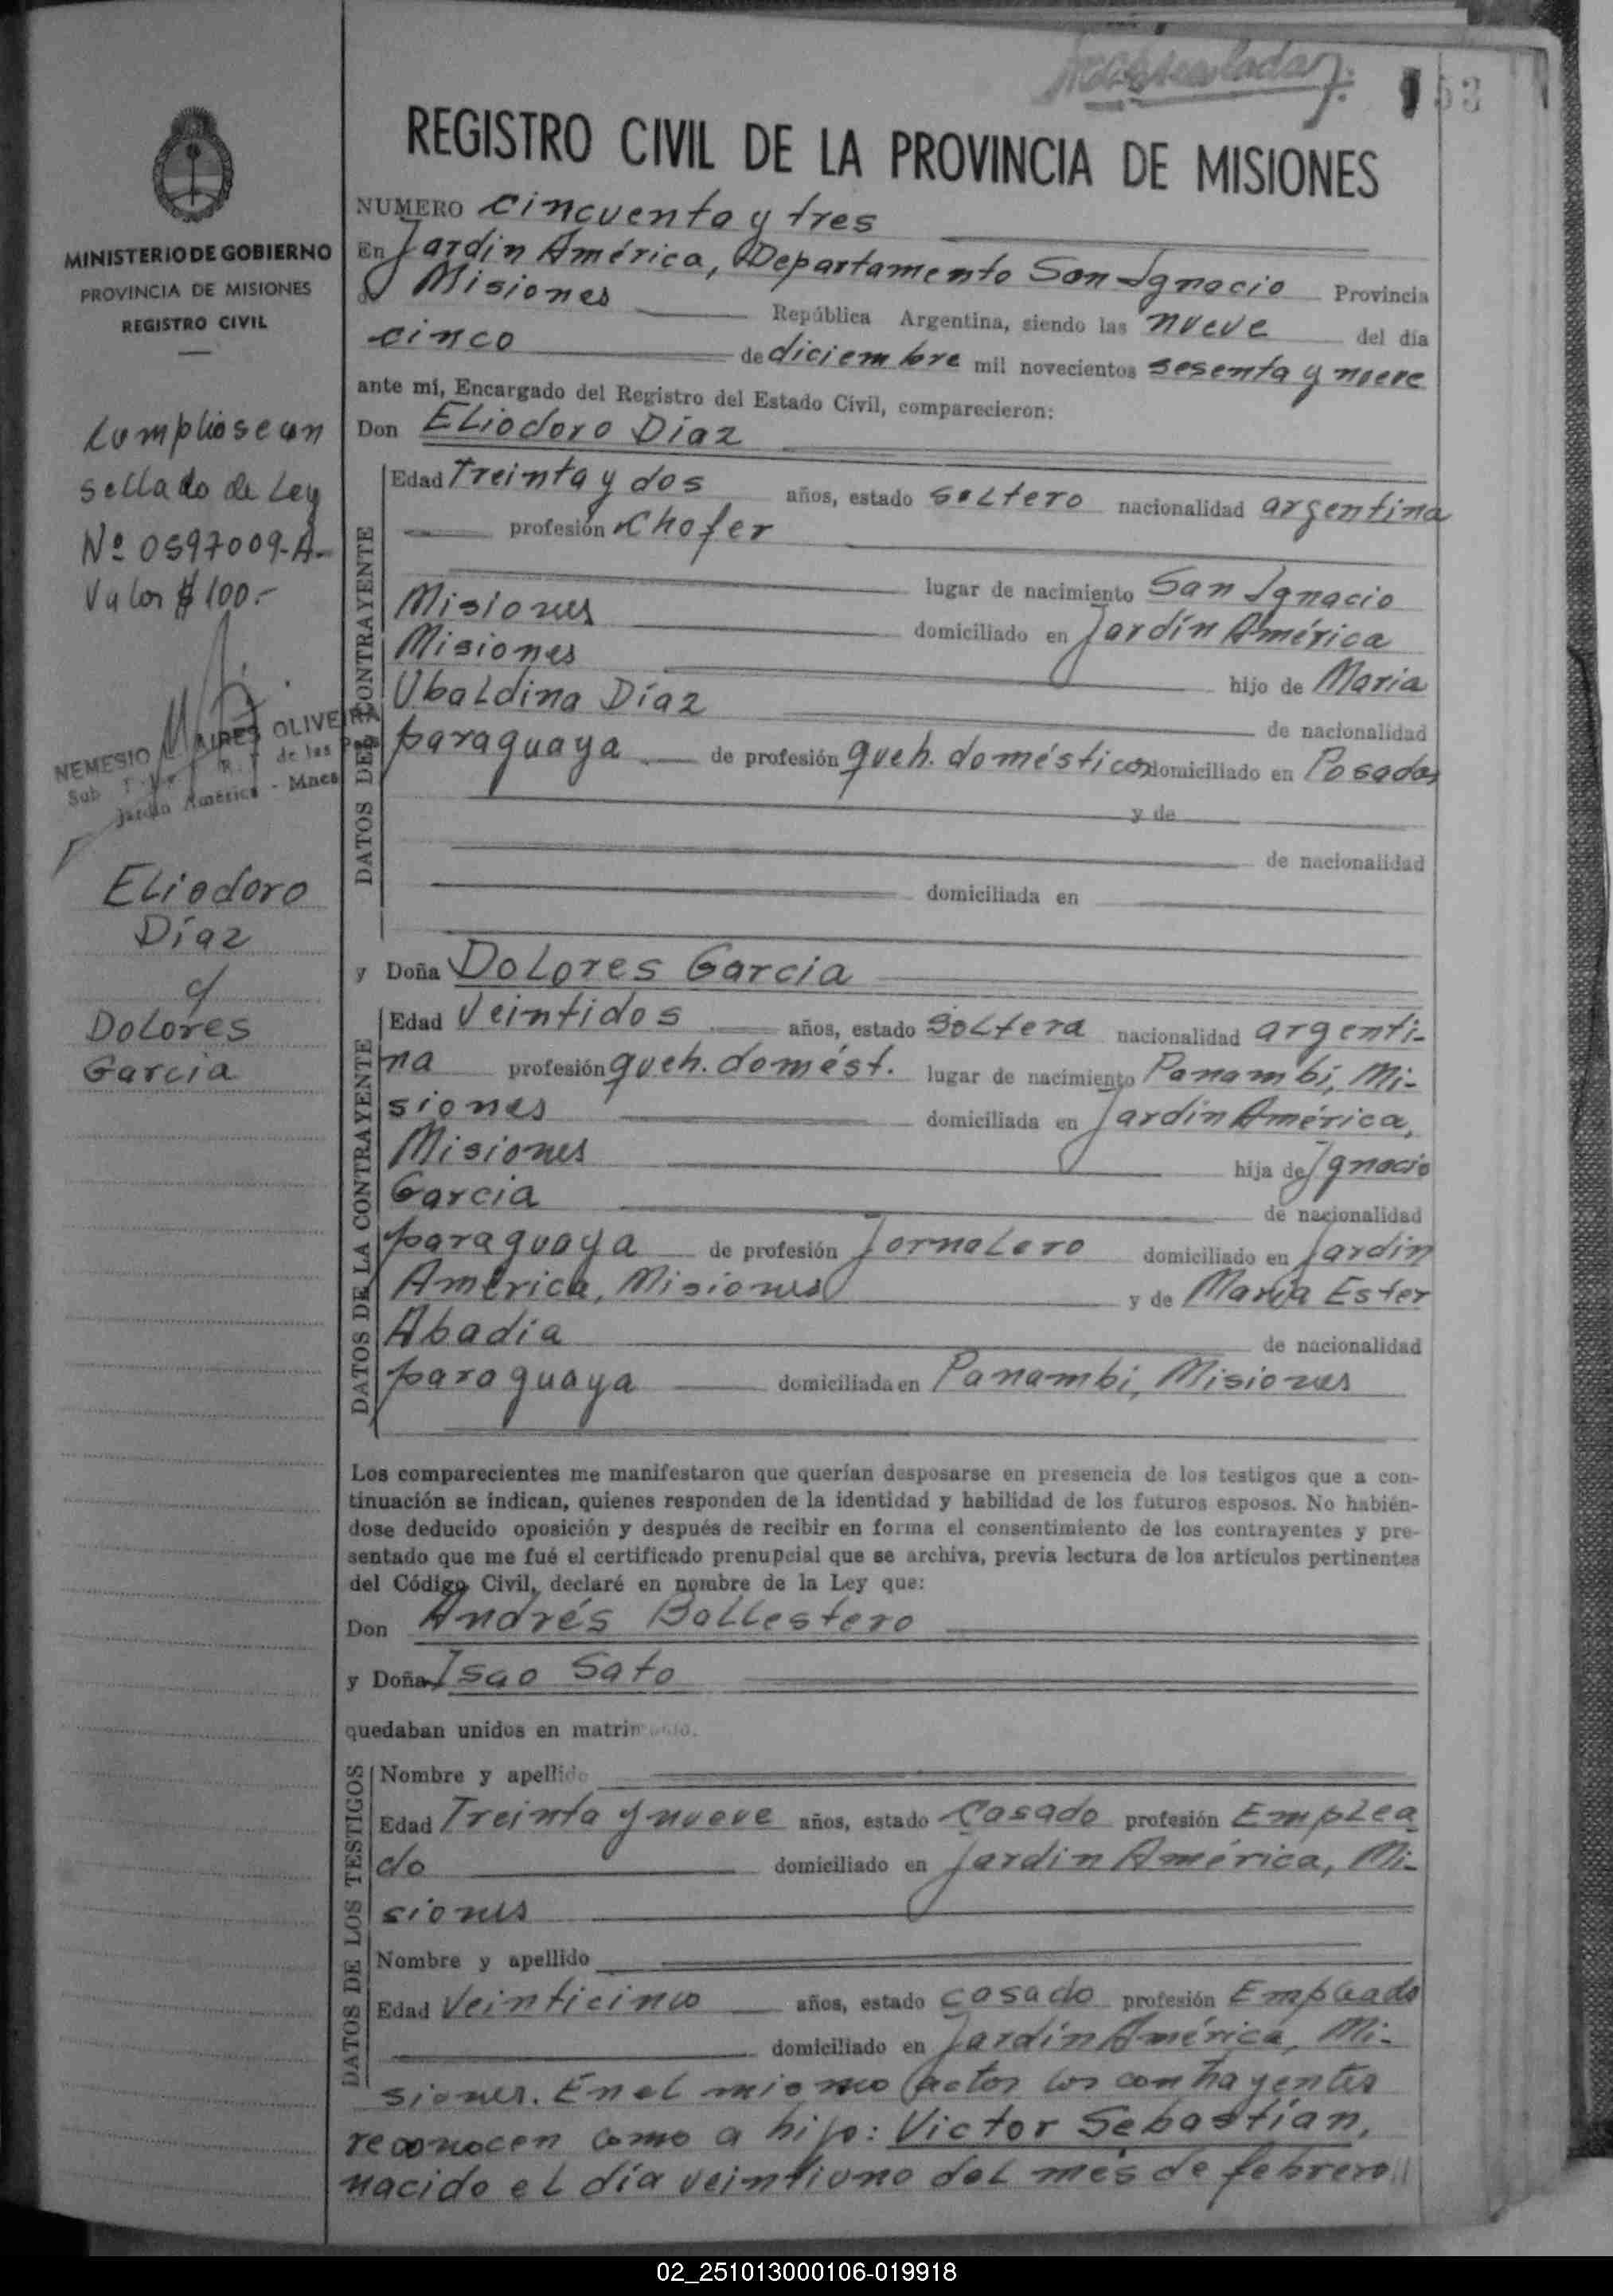 53
REGISTRO CIVIL DE LA PROVINCIA DE MISIONES
MINISTERIO DE GOBIERNO
PROVINCIA DE MISIONES
REGISTRO CIVIL
Cumpliose con
sellado de Ley
Nº 0597009-A-
Valor $ 100.-
NEMESIO AIRES OLIVEIRA
Sub de las Pers
Jardín América - Mnes
Eliodoro
Díaz
c/
Dolores
Garcia
NUMERO cincuenta y tres
En Jardín América, Departamento San Ignacio Provincia
de Misiones República Argentina, siendo las nueve del día
cinco de diciembre mil novecientos sesenta y nueve
ante mí, Encargado del Registro del Estado Civil, comparecieron:
Don Eliodoro Díaz
DATOS DEL CONTRAYENTE
Edad Treinta y dos años, estado soltero nacionalidad argentina
profesión Chofer
lugar de nacimiento San Ignacio
Misiones domiciliado en Jardín América
Misiones hijo de Maria
Ubaldina Díaz de nacionalidad
paraguaya de profesión queh. domésticos domiciliado en Posadas
y de
de nacionalidad
domiciliada en
y Doña Dolores Garcia
DATOS DE LA CONTRAYENTE
Edad Veintidos años, estado soltera nacionalidad argenti-
na profesión queh. domést. lugar de nacimiento Panambí, Mi-
siones domiciliada en Jardín América,
Misiones hija de Ignacio
Garcia de nacionalidad
paraguaya de profesión Jornalero domiciliado en Jardín
América, Misiones y de María Ester
Abadia de nacionalidad
paraguaya domiciliada en Panambí, Misiones
Los comparecientes me manifestaron que querían desposarse en presencia de los testigos que a con-
tinuación se indican, quienes responden de la identidad y habilidad de los futuros esposos. No habién-
dose deducido oposición y después de recibir en forma el consentimiento de los contrayentes y pre-
sentado que me fué el certificado prenupcial que se archiva, previa lectura de los artículos pertinentes
del Código Civil, declaré en nombre de la Ley que:
Don Andrés Ballestero
y Doña Isao Sato
quedaban unidos en matrimonio.
DATOS DE LOS TESTIGOS
Nombre y apellido
Edad Treinta y nueve años, estado Casado profesión Emplea
do domiciliado en Jardín América, Mi-
siones
Nombre y apellido
Edad Veinticinco años, estado casado profesión Empleado
domiciliado en Jardín América, Mi-
siones. En el mismo acto, los contrayentes
reconocen como a hijo: Victor Sebastían,
nacido el día veintiuno del mes de febrero
02_251013000106-019918